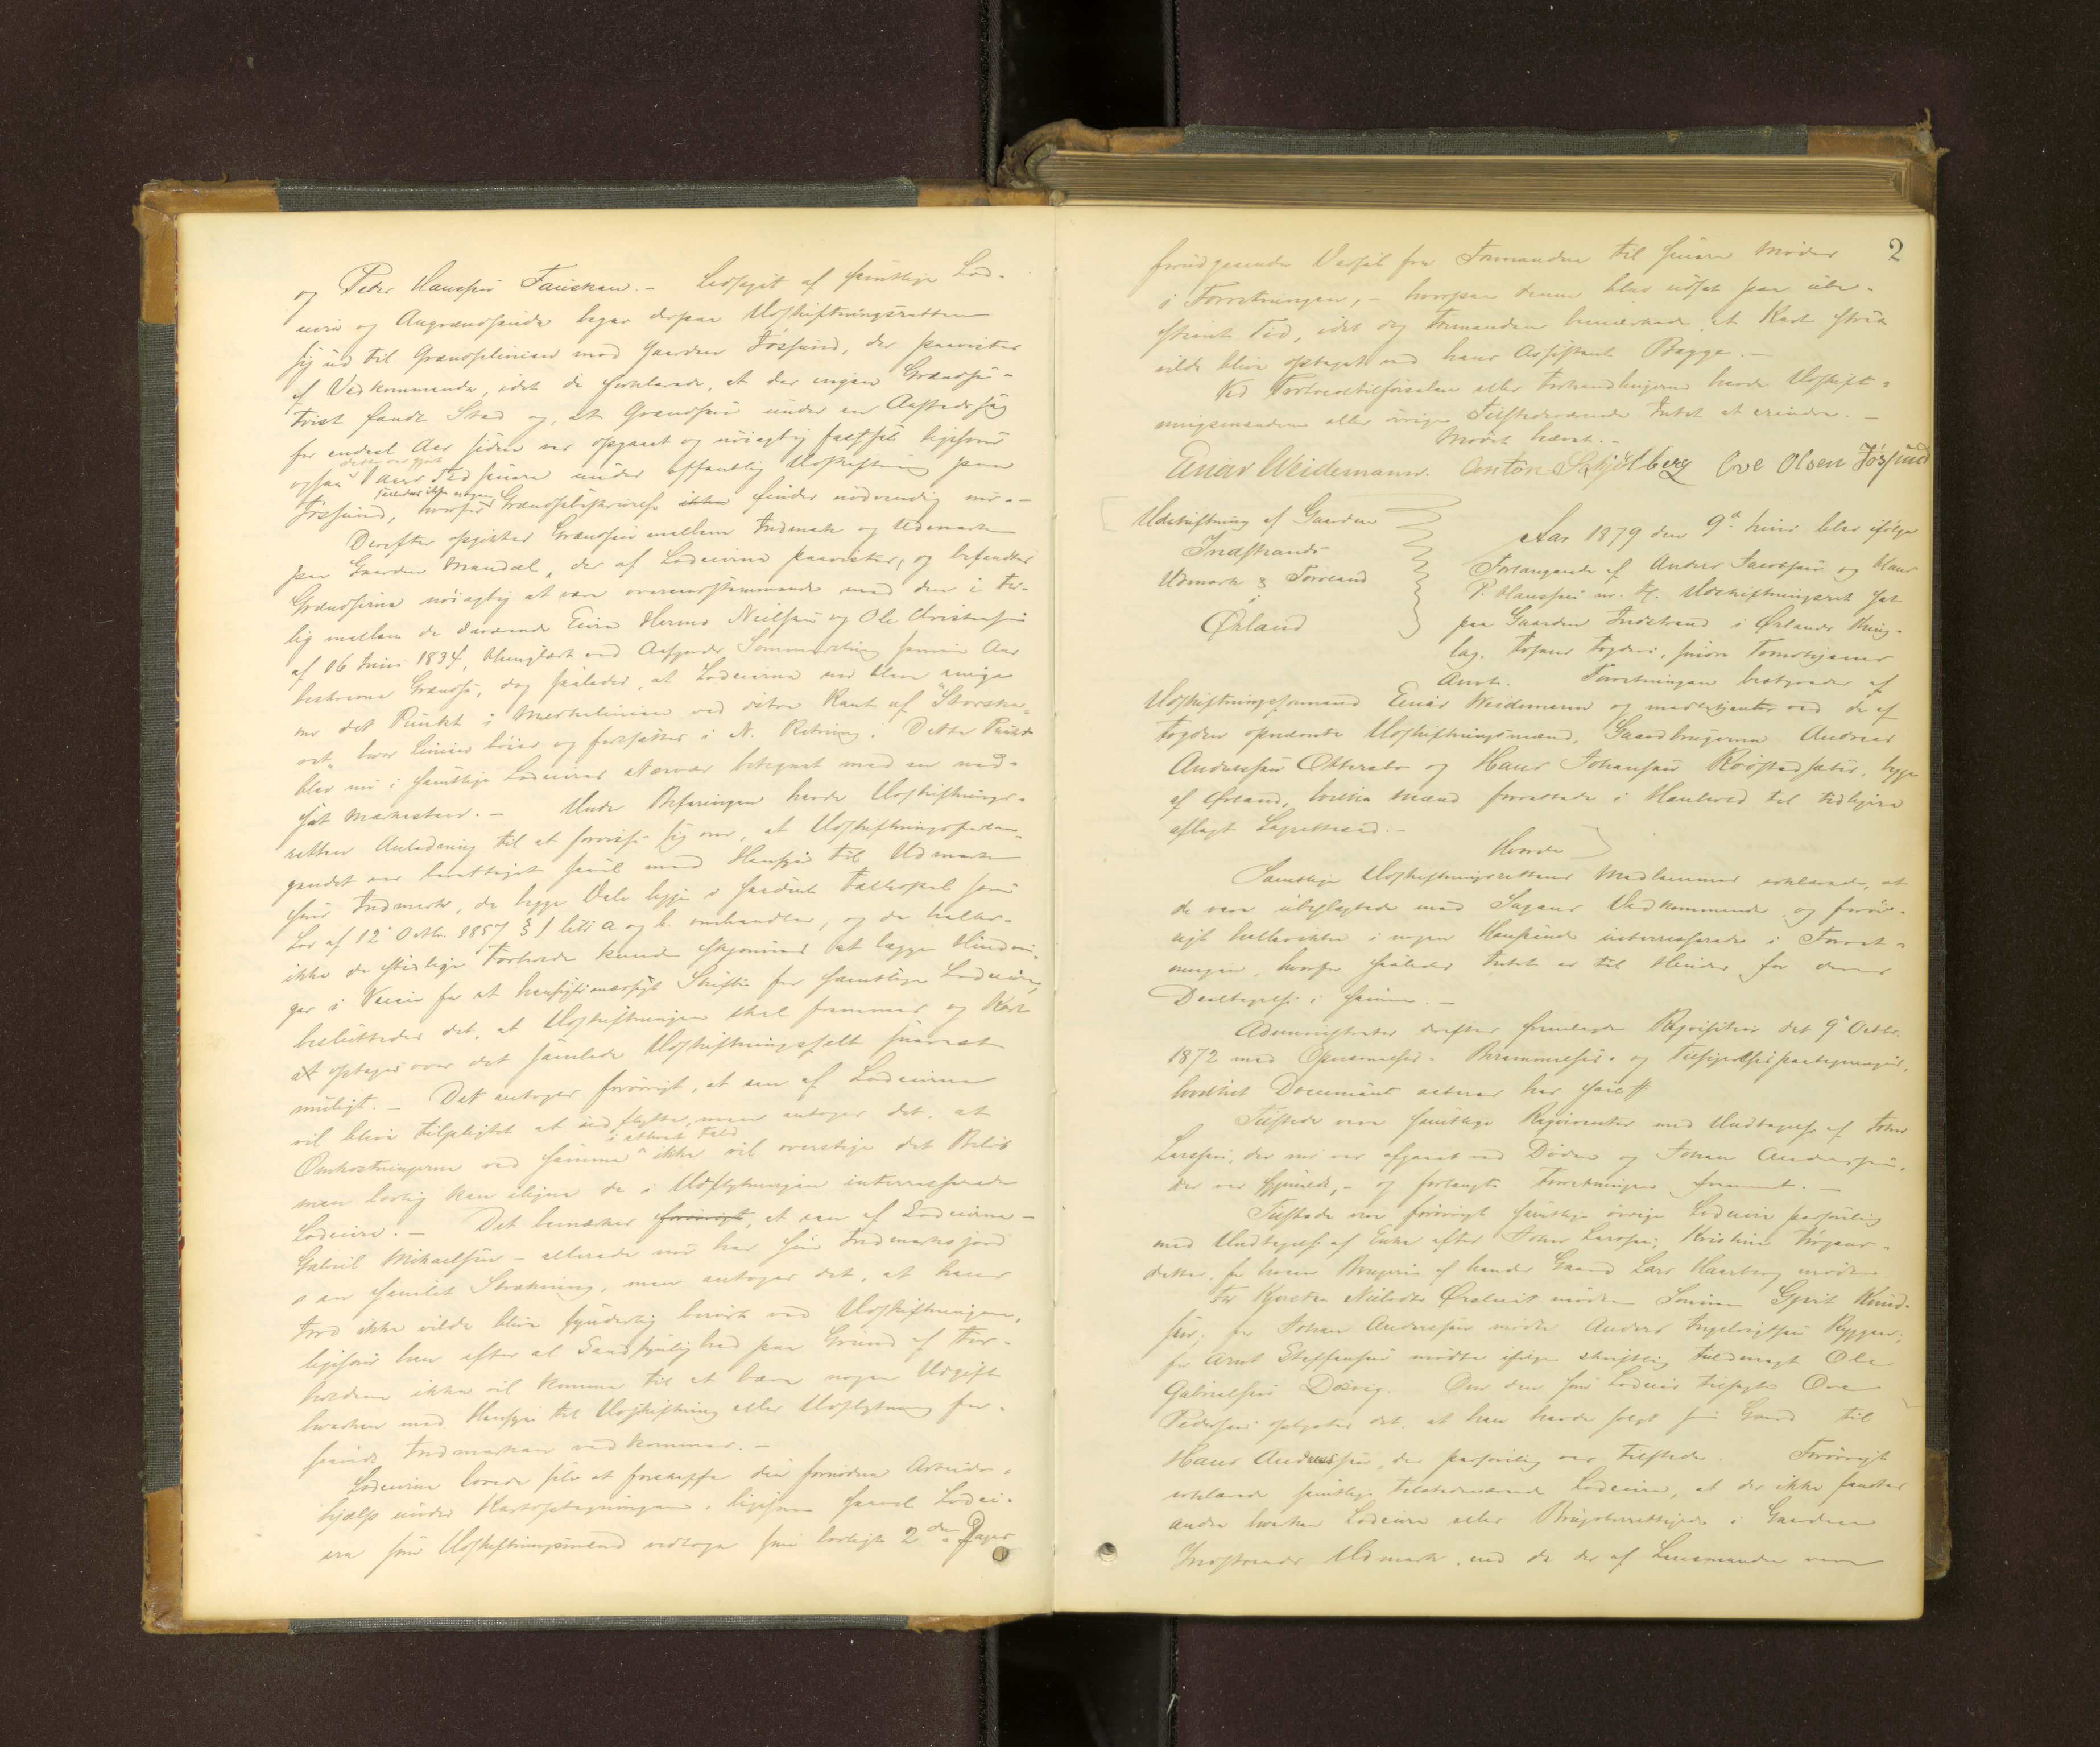 og Peder Hanssen Fausken. – Ledsaget af samtlige Lod-
eiere og Angrændsende begav derpaa Udskiftningsretten
sig ud til Grændselinien mod Gaarden Jøssund, der paavistes
af Vedkommende, idet de forklarede, at der ingen Grændse-
tvist fandt Sted og, at Grændsen under en Aastedssag
for endeel Aar siden var opgaaet og nøiagtig fastsat ligesom
ogsaa dette var gjort Aar Tid senere under offentlig Udskiftning paa
Jøssund, hvorfor saaledes ikke nogen Grændsebeskrivelse ikke findes nødvendig nu. –
Derefter opgikes Grændsen mellem Indmark og Udmark
paa Gaarden Mandal, der af Lodeierne paavistes, og befandtes
Grændserne nøiagtig at være overensstemmende med den i For-
lig mellem de daværende Eiere Hermo Nielsen og Ole Christensen
af 16 Juni 1834, thinglæst ved Aafjords Sommerthing samme Aar
beskrevne Grændse, dog saaledes, at Lodeierne nu blev enige
om det Punkt i Merkelinien ved østre Kant af "Storska-
ret" hvor Linien bøier og fortsætter i N. Retning. Dette Punkt
blev nu i samtlige Lodeieres Nærvær betegnet med en ned-
sat Merkesten. – Under Befaringen havde Udskiftnings-
retten Anledning til at forvisse sig om, at Udskiftningsforlan-
gendet var berettiget saavel med Hensyn til Udmark
som Indmark, da begge Dele ligge i saadant Fællesskab som
Lov af 12te Octbr. 1857 § 1 litr. a og b. omhandler, og da heller-
ikke de stedlige Forholde kunde skjønnes at lægge Hindrin-
ger i Veien for et hensigtsmæssigt Skifte for samtlige Lodeiere,
besluttedes det, at Udskiftningen skal fremmes og Kart
at optages over det samlede Udskiftningsfelt snarest
muligt. – Det antoges forøvrigt, at een af Lodeierne
vil blive tilpligtet at udflytte, men antoges det, at
Omkostningerne ved samme i ethvert Fald ikke vil overstige det Beløb
man lovlig kan ilegne de i Udflytningen interesserede
Lodeiere. – Det bemærkes forøvrigt, at een af Lodeierne –
Gabriel Mikaelsen – allerede nu har sin Indmarksjord
i en samlet Strækning, men antoges det, at hans
Jord ikke vilde blive synderlig berørt ved Udskiftningen,
ligesom han efter al Sandsynlighed paa Grund af For-
holdene ikke vil komme til at bære nogen Udgift
hverken med Hensyn til Udskiftning eller Udflytning for-
saavidt Indmarken vedkommer. –
Lodeierne lovede selv at fremskaffe den fornødne Arbeids-
hjælp under Kartoptagningen, ligesom saavel Lodei-
ere som Udskiftningsmænd vedtoge som lovligt 2 de Dages
2
forudgaaende Varsel fra Formanden til senere Møder
i Forretningen, – hvorpaa denne blev udsat paa ube-
stemt Tid, idet dog Formanden bemærkede, at Kart strax
vilde blive optaget ved hans Assistent Bagge. –
Ved Protocoltilførselen eller Forhandlingerne havde Udskift-
ningsmændene eller øvrige Tilstedeværende Intet at erindre. –
Mødet hævet. –
Einar Weidemann. Anton Schjølberg Ove Olsen Jøssund
Udskiftning af Gaarden
Indstrands
Udmark & Torvland
i
Ørland
Aar 1879 den 9de Juni blev ifølge
Forlangende af Anders Jacobsen og Hans
P. Hanssen m. fl. Udskiftningsret sat
paa Gaarden Indstrand i Ørlands Thing-
lag, Fosens Fogderi, søndre Trondhjems
Amt. Forretningen bestyredes af
Udskiftningsformand Einar Weidemann og medbetjentes ved de af
Fogden opnævnte Udskiftningsmænd, Gaardbrugerne Andreas
Anderssen Ottersbo og Hans Johanssen Røstadsæter, begge
af Ørland, hvilke Mænd forrettede i Henhold til tidligere
aflagt Lagretteseed. –
Hvorda
Samtlige Udskiftningsrettens Medlemmer erklærede, at
de vare ubeslægtede med Sagens Vedkommende og forøv-
rigt hellerikke i nogen Henseende interesserede i Forret-
ningen, hvorfor saaledes Intet er til Hinder for deres
Deeltagelse i samme. –
Administrator derefter fremlagde Reqvisition det 9de Octbr.
1872 med Opnævnelses- Berammelses- og Tilsigelsespaategninger,
hvilket Document acteres her saal#
Tilstede vare samtlige Reqvirenter med Undtagelse af John
Larssen, der nu var afgaaet ved Døden og Johan Anderssen,
der var hjemme, – og forlangte Forretningen fremmet. –
Tilstede var forøvrigt samtlige øvrige Lodeiere personlig
med Undtagelse af Enke efter John Larssen, Kristine Jørgens-
datter, for hvem Brugeren af hendes Gaard Lars Haarberg mødte
For Kjersten Nielsdtr Ørslevit mødte Sønnen Gjert Knud-
sen; for Johan Anderssen mødte Anders Ingebrigtsen Ryggen;
for Arnt Steffensen mødte ifølge skriftlig Fuldmagt Ole
Gabrielsen Døsvig. Om den som Lodeier tilsagte Ove
Pedersen oplystes det, at han havde solgt sin Gaard til
Hans Anderssen, der personlig var tilstede. Forøvrigt
erklærede samtlige tilstedeværende Lodeiere, at der ikke fandtes
andre hverken Lodeiere eller Brugsberettigede i Gaarden
Indstrands Udmark, end de der af Lensmanden vare